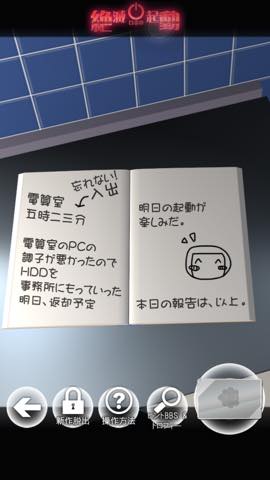 絶滅起動
忘れない!
入出
電算室
五時二三分
電算室のPCの
調子が悪かったので
HDDを
事務所にもっていった
明日、返却予定
明日の起動が
楽しみだ。
本日の報告は、以上。
新作脱出
操作方法
ヒントBBS&
トロフィー